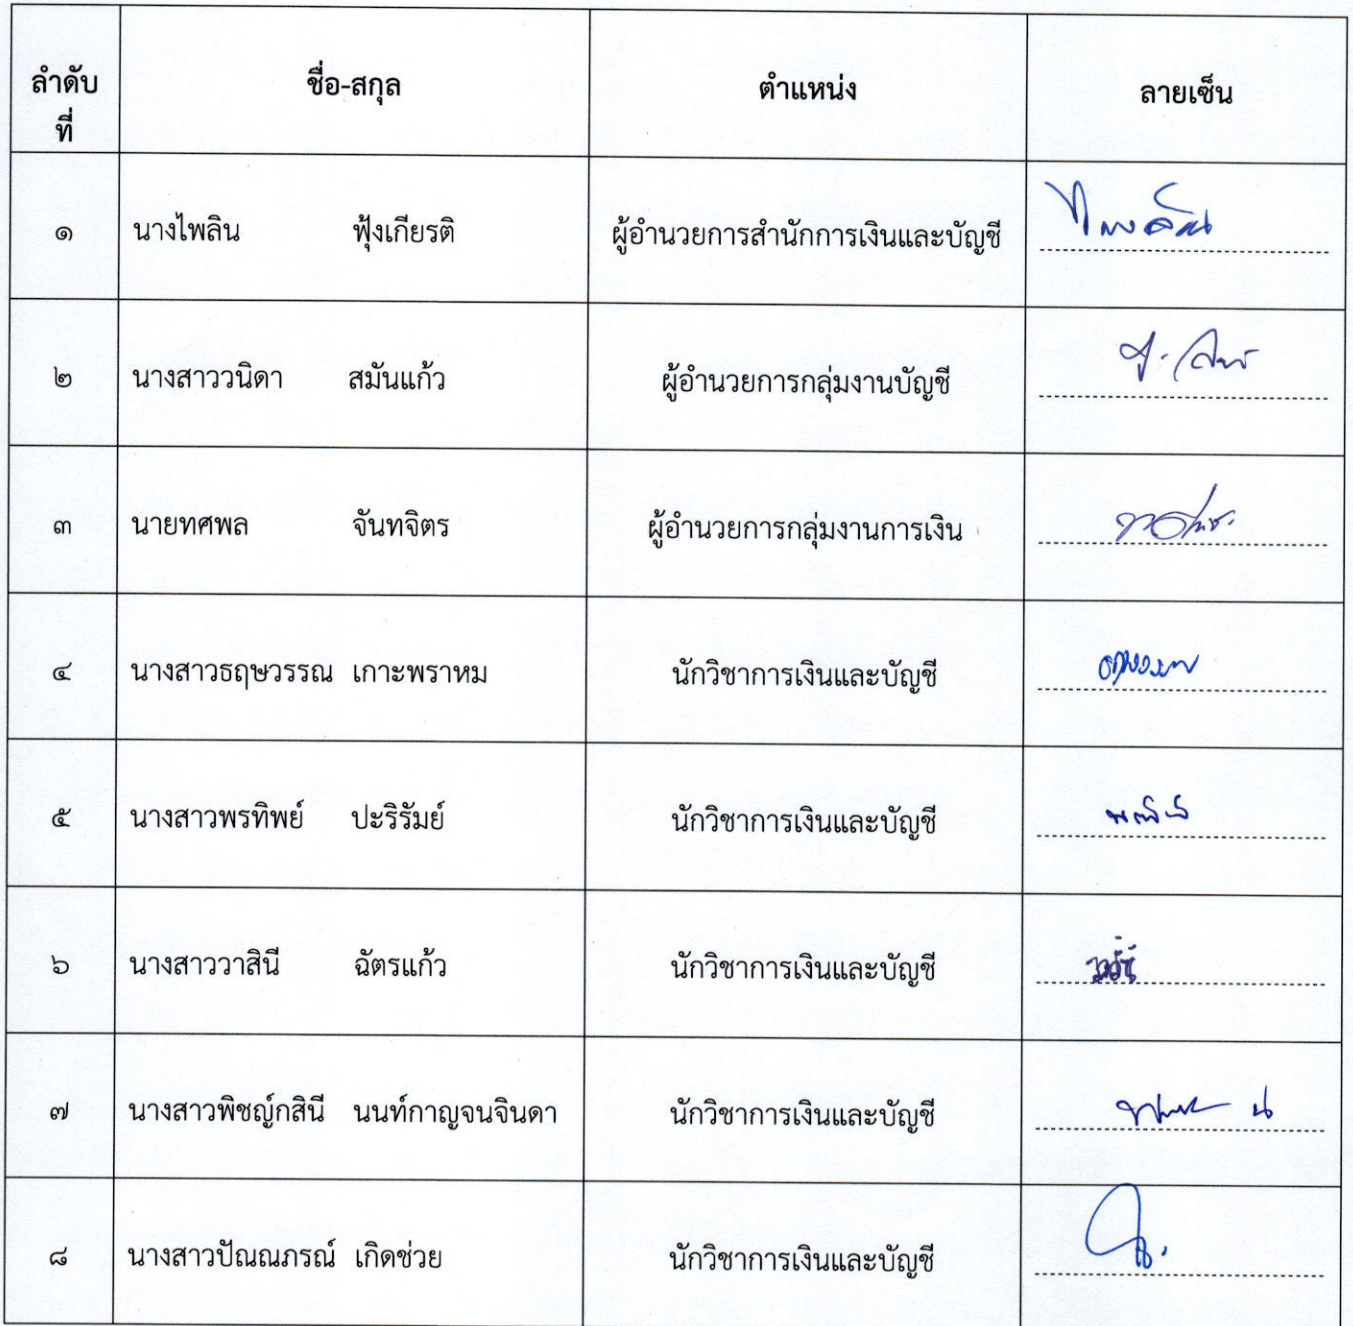 ลำดับที่ ชื่อ-สกุล ตำแหน่ง ลายเซ็น
๑ นางไพลิน ฟุ้งเกียรติ ผู้อำนวยการสำนักการเงินและบัญชี
๒ นางสาววนิดา สมันแก้ว ผู้อำนวยการกลุ่มงานบัญชี
๓ นายทศพล จันทจิตร ผู้อำนวยการกลุ่มงานการเงิน
๔ นางสาวธฤษวรรณ เกาะพราหม นักวิชาการเงินและบัญชี
๕ นางสาวพรทิพย์ ปะริรัมย์ นักวิชาการเงินและบัญชี
๖ นางสาววาสินี ฉัตรแก้ว นักวิชาการเงินและบัญชี
๗ นางสาวพิชญ์กสินี นนท์กาญจนจินดา นักวิชาการเงินและบัญชี
๘ นางสาวปัณณภรณ์ เกิดช่วย นักวิชาการเงินและบัญชี